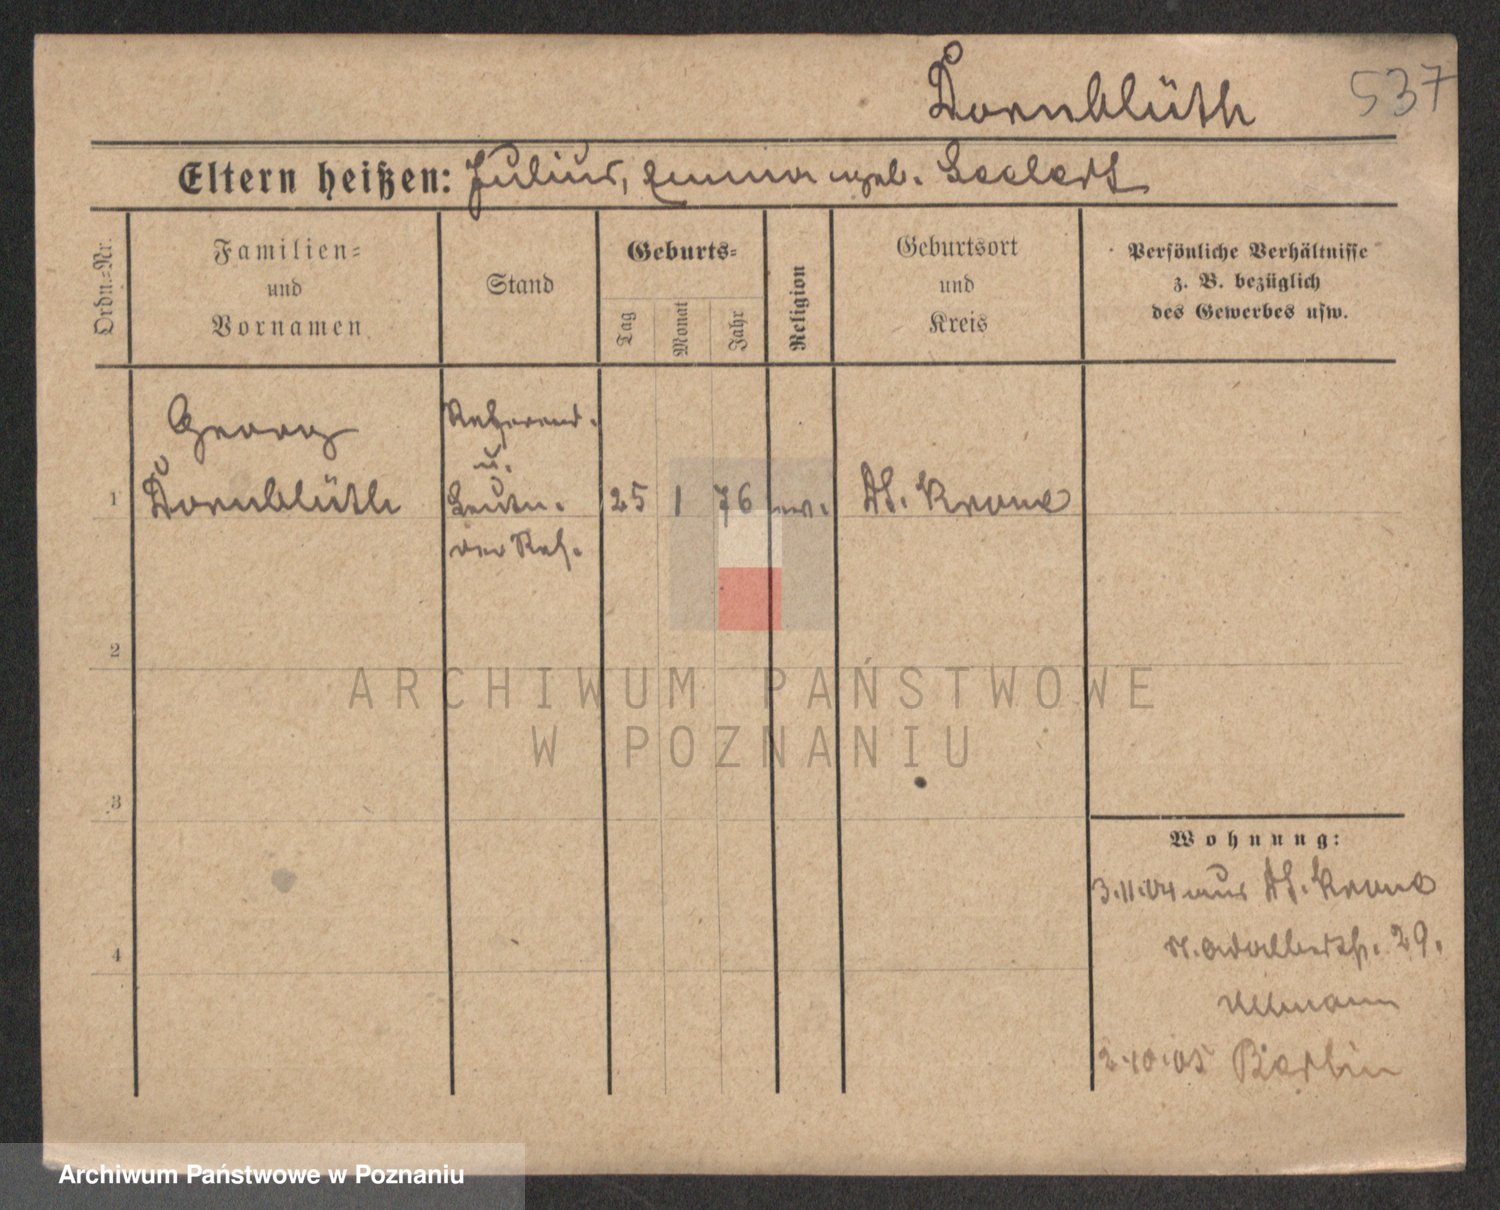 Dornblüth
537
Eltern heißen: Julius, Emma geb. Seelert
Ordn.=Nr.
Familien=
und
Vornamen
Stand
Geburts=
Tag
Monat
Jahr
Religion
Geburtsort
und
Kreis
Persönliche Verhältnisse
z. B. bezüglich
des Gewerbes usw.
1
Georg
Dornblüth
Referend.
u.
Leutn.
der Res.
25 1 76 ev. Dt. Krone
2
3
4
Wohnung:
3.11.04 aus Dt. Krone
St. Adalbertstr. 29.
Ullmann
2.10.05 Berlin
ARCHIWUM PAŃSTWOWE
W POZNANIU
Archiwum Państwowe w Poznaniu